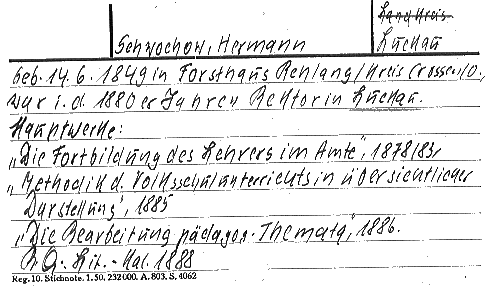 Landkreis
Schwochow, Hermann
Luckau
geb. 14.6.1849 in Forsthaus Rehlang/Kreis Crossen/O.
war i.d. 1880er Jahren Rektor in Luckau.
Hauptwerke:
„Die Fortbildung des Lehrers im Amte", 1878/83,
„Methodik d. Volksschulunterrichts in übersichtlicher
Darstellung", 1885
„Die Bearbeitung pädagog. Themata", 1886.
Lit.-Kal. 1888
Reg. 10. Stichnote. 1. 50. 232000. A. 803. S. 4062